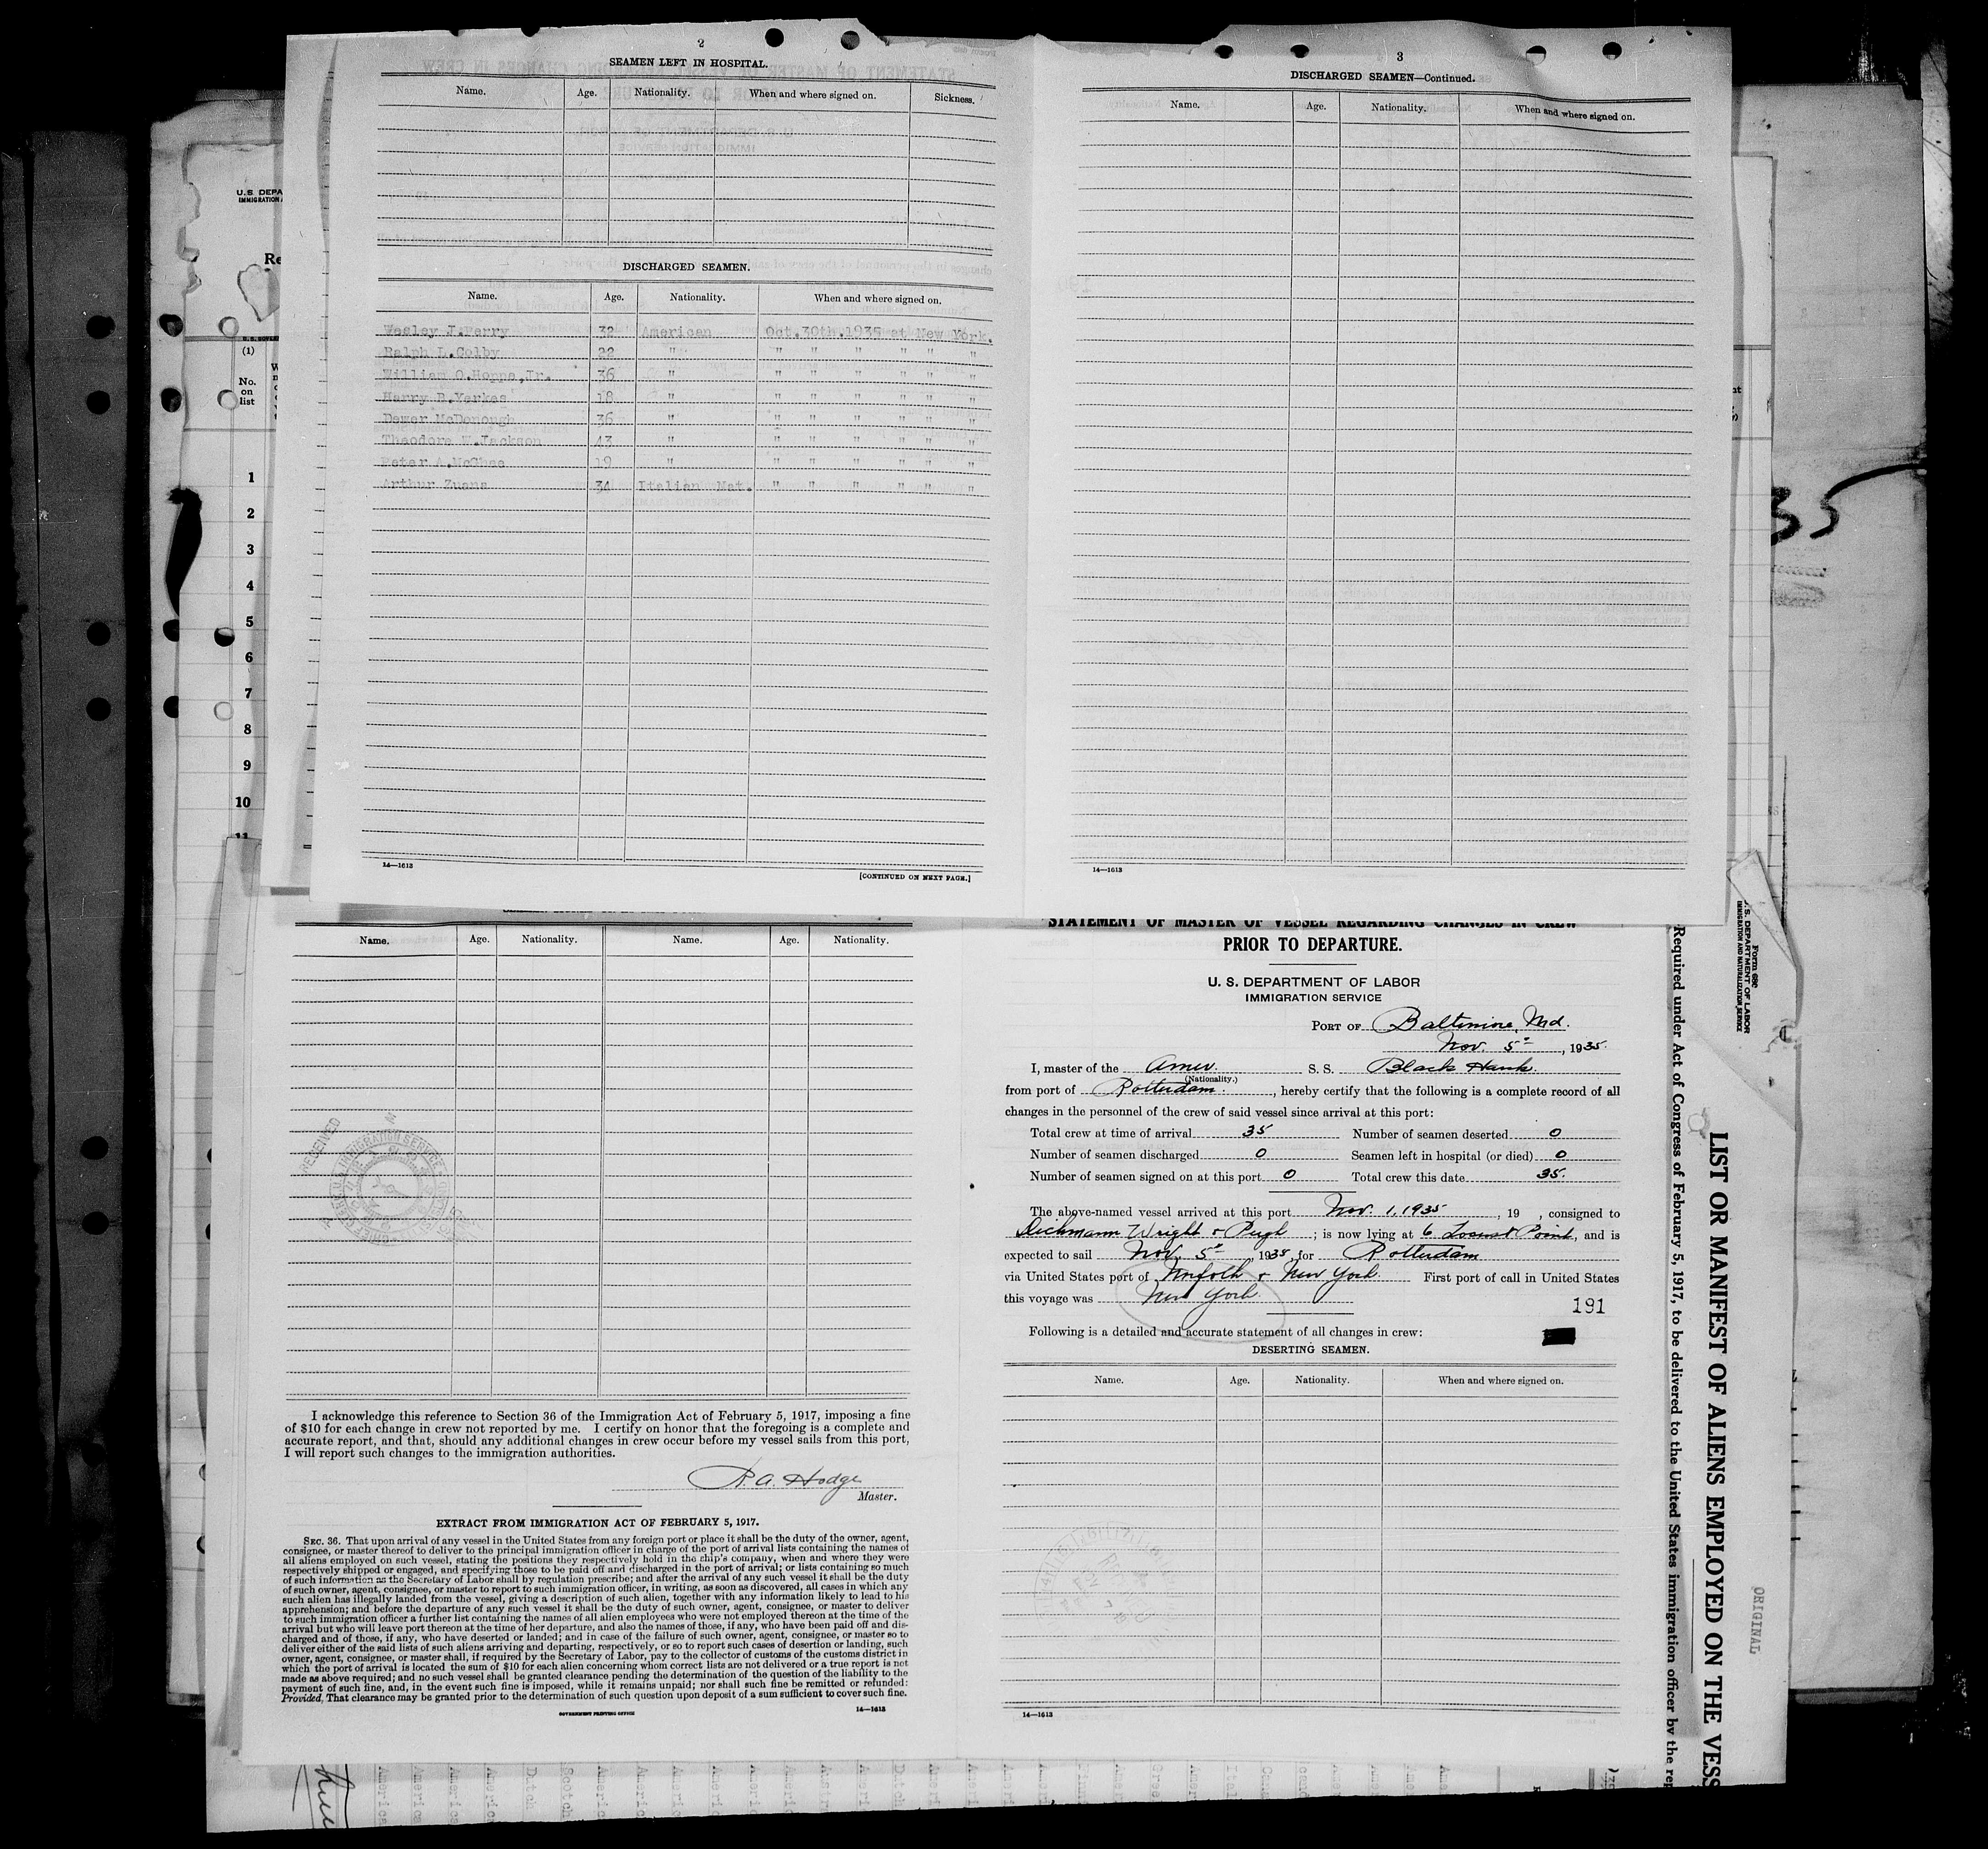 2
SEAMEN LEFT IN HOSPITAL.
Name. Age. Nationality. When and where signed on. Sickness.
DISCHARGED SEAMEN.
Name. Age. Nationality. When and where signed on.
Wesley J.Perry 32 American Oct.30th.1935 at New York.
Ralph L.Colby 22 " " " " " " "
William O.Hoppe,Jr. 36 " " " " " " "
Harry B.Yerkes 18 " " " " " " "
Dewer McDonough 36 " " " " " " "
Theodore W.Jackson 43 " " " " " " "
Peter A.McGhee 19 " " " " " " "
Arthur Zuana 34 Italian Nat. " " " " " "
14—1613
[CONTINUED ON NEXT PAGE.]
3
DISCHARGED SEAMEN—Continued.
Name. Age. Nationality. When and where signed on.
14—1613
U.S. DEPA
IMMIGRATION
Re
(1)
No.
on
list
1
2
3
4
5
6
7
8
9
10
11
35
Name. Age. Nationality. Name. Age. Nationality.
RECEIVED
I acknowledge this reference to Section 36 of the Immigration Act of February 5, 1917, imposing a fine
of $10 for each change in crew not reported by me. I certify on honor that the foregoing is a complete and
accurate report, and that, should any additional changes in crew occur before my vessel sails from this port,
I will report such changes to the immigration authorities.
R A. Hodge
Master.
EXTRACT FROM IMMIGRATION ACT OF FEBRUARY 5, 1917.
SEC. 36. That upon arrival of any vessel in the United States from any foreign port or place it shall be the duty of the owner, agent,
consignee, or master thereof to deliver to the principal immigration officer in charge of the port of arrival lists containing the names of
all aliens employed on such vessel, stating the positions they respectively hold in the ship's company, when and where they were
respectively shipped or engaged, and specifying those to be paid off and discharged in the port of arrival; or lists containing so much
of such information as the Secretary of Labor shall by regulation prescribe; and after the arrival of any such vessel it shall be the duty
of such owner, agent, consignee, or master to report to such immigration officer, in writing, as soon as discovered, all cases in which any
such alien has illegally landed from the vessel, giving a description of such alien, together with any information likely to lead to his
apprehension; and before the departure of any such vessel it shall be the duty of such owner, agent, consignee, or master to deliver
to such immigration officer a further list containing the names of all alien employees who were not employed thereon at the time of the
arrival but who will leave port thereon at the time of her departure, and also the names of those, if any, who have been paid off and dis-
charged and of those, if any, who have deserted or landed; and in case of the failure of such owner, agent, consignee, or master so to
deliver either of the said lists of such aliens arriving and departing, respectively, or so to report such cases of desertion or landing, such
owner, agent, consignee, or master shall, if required by the Secretary of Labor, pay to the collector of customs of the customs district in
which the port of arrival is located the sum of $10 for each alien concerning whom correct lists are not delivered or a true report is not
made as above required; and no such vessel shall be granted clearance pending the determination of the question of the liability to the
payment of such fine, and, in the event such fine is imposed, while it remains unpaid; nor shall such fine be remitted or refunded:
Provided, That clearance may be granted prior to the determination of such question upon deposit of a sum sufficient to cover such fine.
GOVERNMENT PRINTING OFFICE
14—1613
STATEMENT OF MASTER OF VESSEL REGARDING CHANGES IN CREW
PRIOR TO DEPARTURE.
U. S. DEPARTMENT OF LABOR
IMMIGRATION SERVICE
PORT OF Baltimore, Md.
Nov. 5", 1935.
I, master of the Amer. S. S. Black Hawk
(Nationality.)
from port of Rotterdam., hereby certify that the following is a complete record of all
changes in the personnel of the crew of said vessel since arrival at this port:
Total crew at time of arrival 35 Number of seamen deserted 0
Number of seamen discharged 0 Seamen left in hospital (or died) 0
Number of seamen signed on at this port 0 Total crew this date 35.
The above-named vessel arrived at this port Nov. 1, 1935, 19 , consigned to
Dichmann Wright & Pugh; is now lying at 6 Locust Point, and is
expected to sail Nov. 5", 1935, for Rotterdam
via United States port of Norfolk & New York. First port of call in United States
this voyage was New York.
191
Following is a detailed and accurate statement of all changes in crew:
DESERTING SEAMEN.
Name. Age. Nationality. When and where signed on.
14—1613
Form 680
U.S. DEPARTMENT OF LABOR
IMMIGRATION AND NATURALIZATION SERVICE
LIST OR MANIFEST OF ALIENS EMPLOYED ON THE VESS
Required under Act of Congress of February 5, 1917, to be delivered to the United States immigration officer by the rep
ORIGINAL
America
America
America
America
Dutch
Scotch